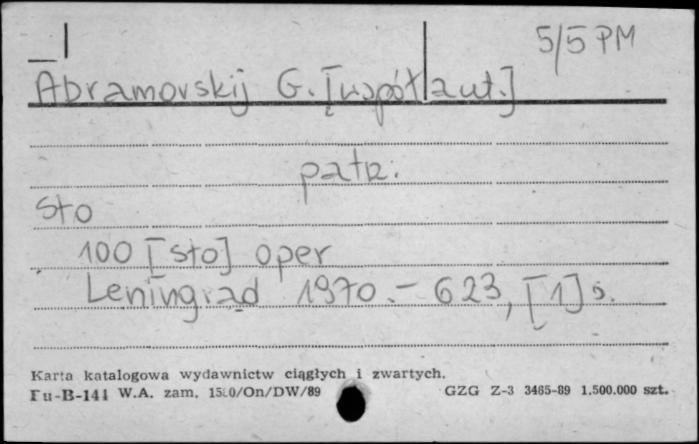 5/5 PM
Abramovskij G. [współaut.]
patrz.
Sto
100 [sto] oper
Leningrad 1970. – 623, [1] s.
Karta katalogowa wydawnictw ciągłych i zwartych.
Pu-B-141 W.A. zam. 1580/On/DW/89 GZG Z-3 3485-89 1.500.000 szt.